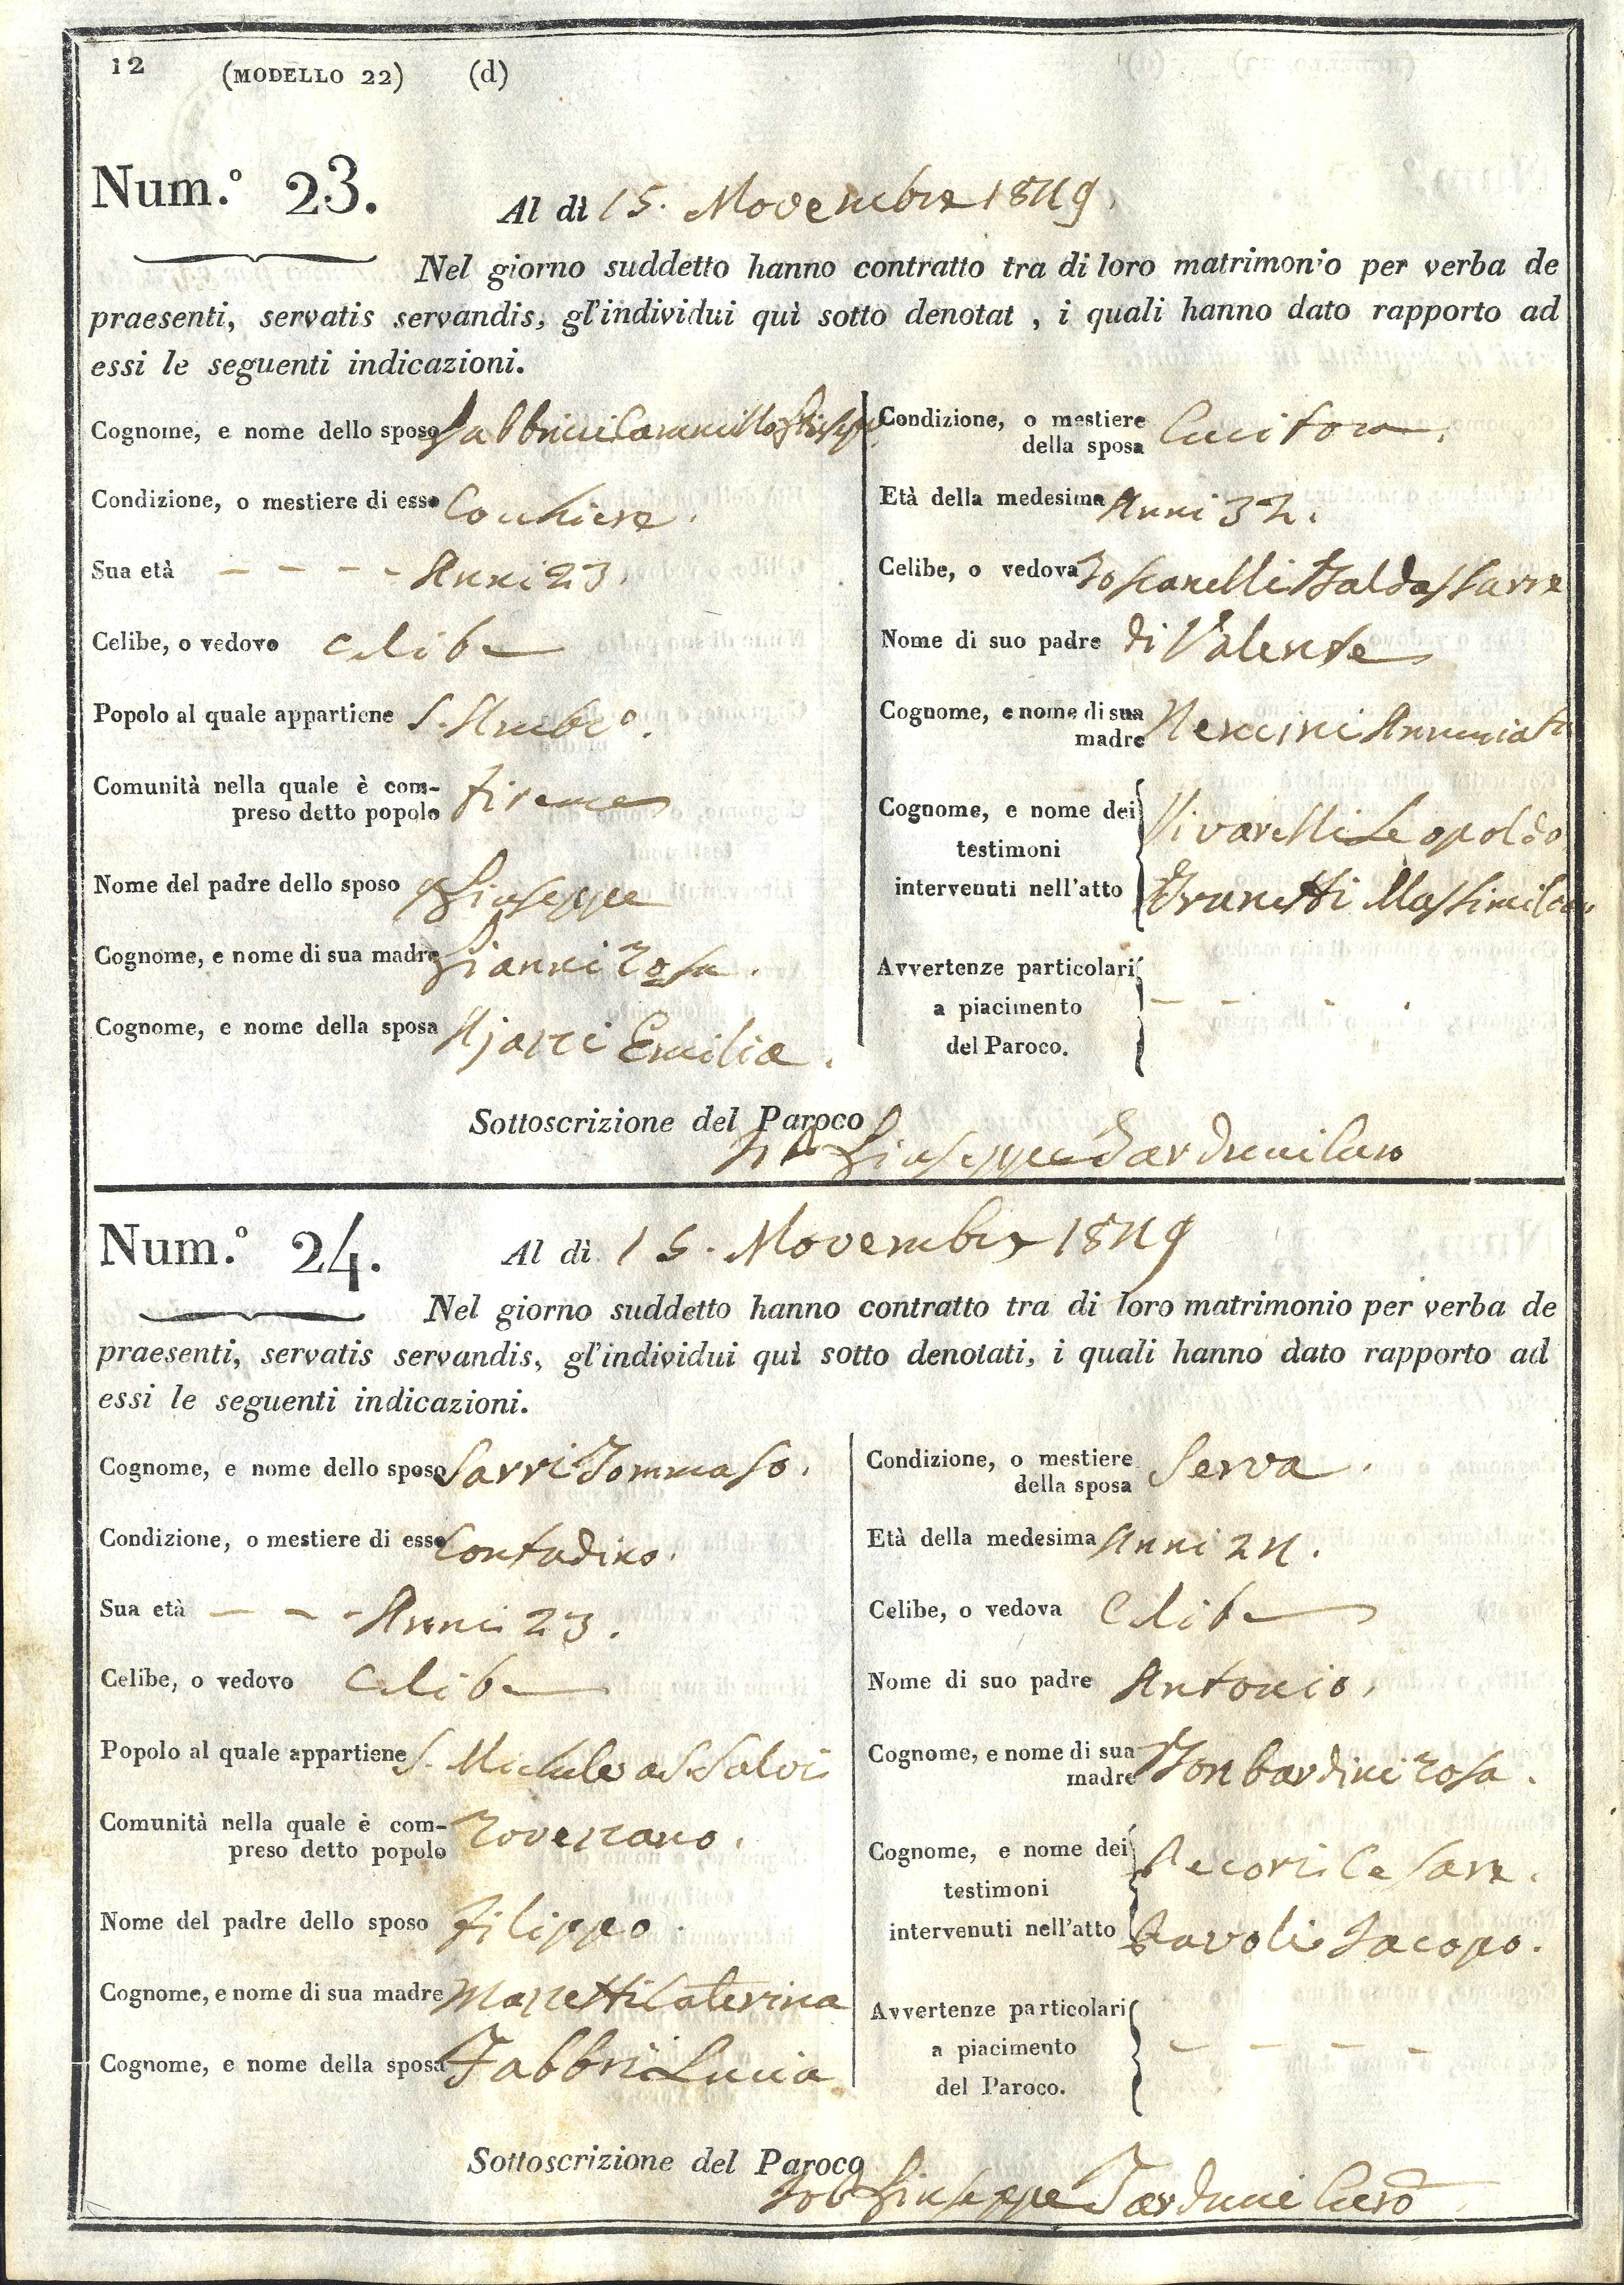 12 (MODELLO 22) (d)
Num.º 23.
Al dì 15. Novembre 1849.
Nel giorno suddetto hanno contratto tra di loro matrimonio per verba de
praesenti, servatis servandis, gl'individui quì sotto denotat , i quali hanno dato rapporto ad
essi le seguenti indicazioni.
Cognome, e nome dello sposo Fabbrini Cammillo
Condizione, o mestiere di esso Cocchiere.
Sua età - - - - Anni 23.
Celibe, o vedovo Celibe
Popolo al quale appartiene S. Ambro.
Comunità nella quale è com-
preso detto popolo Firenze
Nome del padre dello sposo Giuseppe
Cognome, e nome di sua madre Gianni Rosa.
Cognome, e nome della sposa Ajazzi Emilia.
Condizione, o mestiere
della sposa Cucitora.
Età della medesima Anni 32.
Celibe, o vedova Toscanelli Baldassarre
Nome di suo padre di Valente
Cognome, e nome di sua
madre Nencini Annunziata
Cognome, e nome dei
testimoni
intervenuti nell'atto
Vivarelli Leopoldo
Brunetti Massimiliano
Avvertenze particolari
a piacimento
del Paroco.
- - - .
Sottoscrizione del Paroco
Giuseppe Tarduci
Num.º 24.
Al dì 15. Novembre 1849
Nel giorno suddetto hanno contratto tra di loro matrimonio per verba de
praesenti, servatis servandis, gl'individui quì sotto denotati, i quali hanno dato rapporto ad
essi le seguenti indicazioni.
Cognome, e nome dello sposo Sarri Tommaso.
Condizione, o mestiere di esso Contadino.
Sua età - - - Anni 23.
Celibe, o vedovo Celibe
Popolo al quale appartiene S. Michele a S. Salvi
Comunità nella quale è com-
preso detto popolo Rovezzano.
Nome del padre dello sposo Filippo.
Cognome, e nome di sua madre Mazzetti Caterina
Cognome, e nome della sposa Fabbri Lucia
Condizione, o mestiere
della sposa Serva.
Età della medesima Anni 24.
Celibe, o vedova Celibe
Nome di suo padre Antonio.
Cognome, e nome di sua
madre Bonbardini Rosa.
Cognome, e nome dei
testimoni
intervenuti nell'atto
Pecori Cesare.
Ravoli Jacopo.
Avvertenze particolari
a piacimento
del Paroco.
- - - - -
Sottoscrizione del Paroco
Giuseppe Tarduci